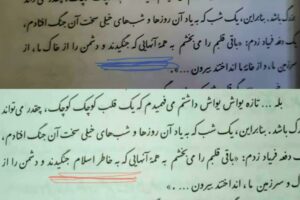 ـزرگ باشد. بنابراین، یک شب که به یاد آن روزها و شب‌های خیلی سخت آن جنگ افتادم،
یک دفعه فریاد زدم: «باقی قلبم را می‌بخشم به همهٔ آنهایی که جنگیدند و دشمن را از
و از خانهٔ ما انداختند بیرون... .»
بله... تازه یواش یواش داشتم می‌فهمیدم که یک قلب کوچک کوچک، چقدر می‌تواند
ـزرگ باشد. بنابراین، یک شب که به یاد آن روزها و شب‌های خیلی سخت آن جنگ افتادم،
دفعه فریاد زدم: «باقی قلبم را می‌بخشم به همهٔ آنهایی که به خاطر اسلام جنگیدند و دشمن را از
و سرزمین ما، انداختند بیرون... .»